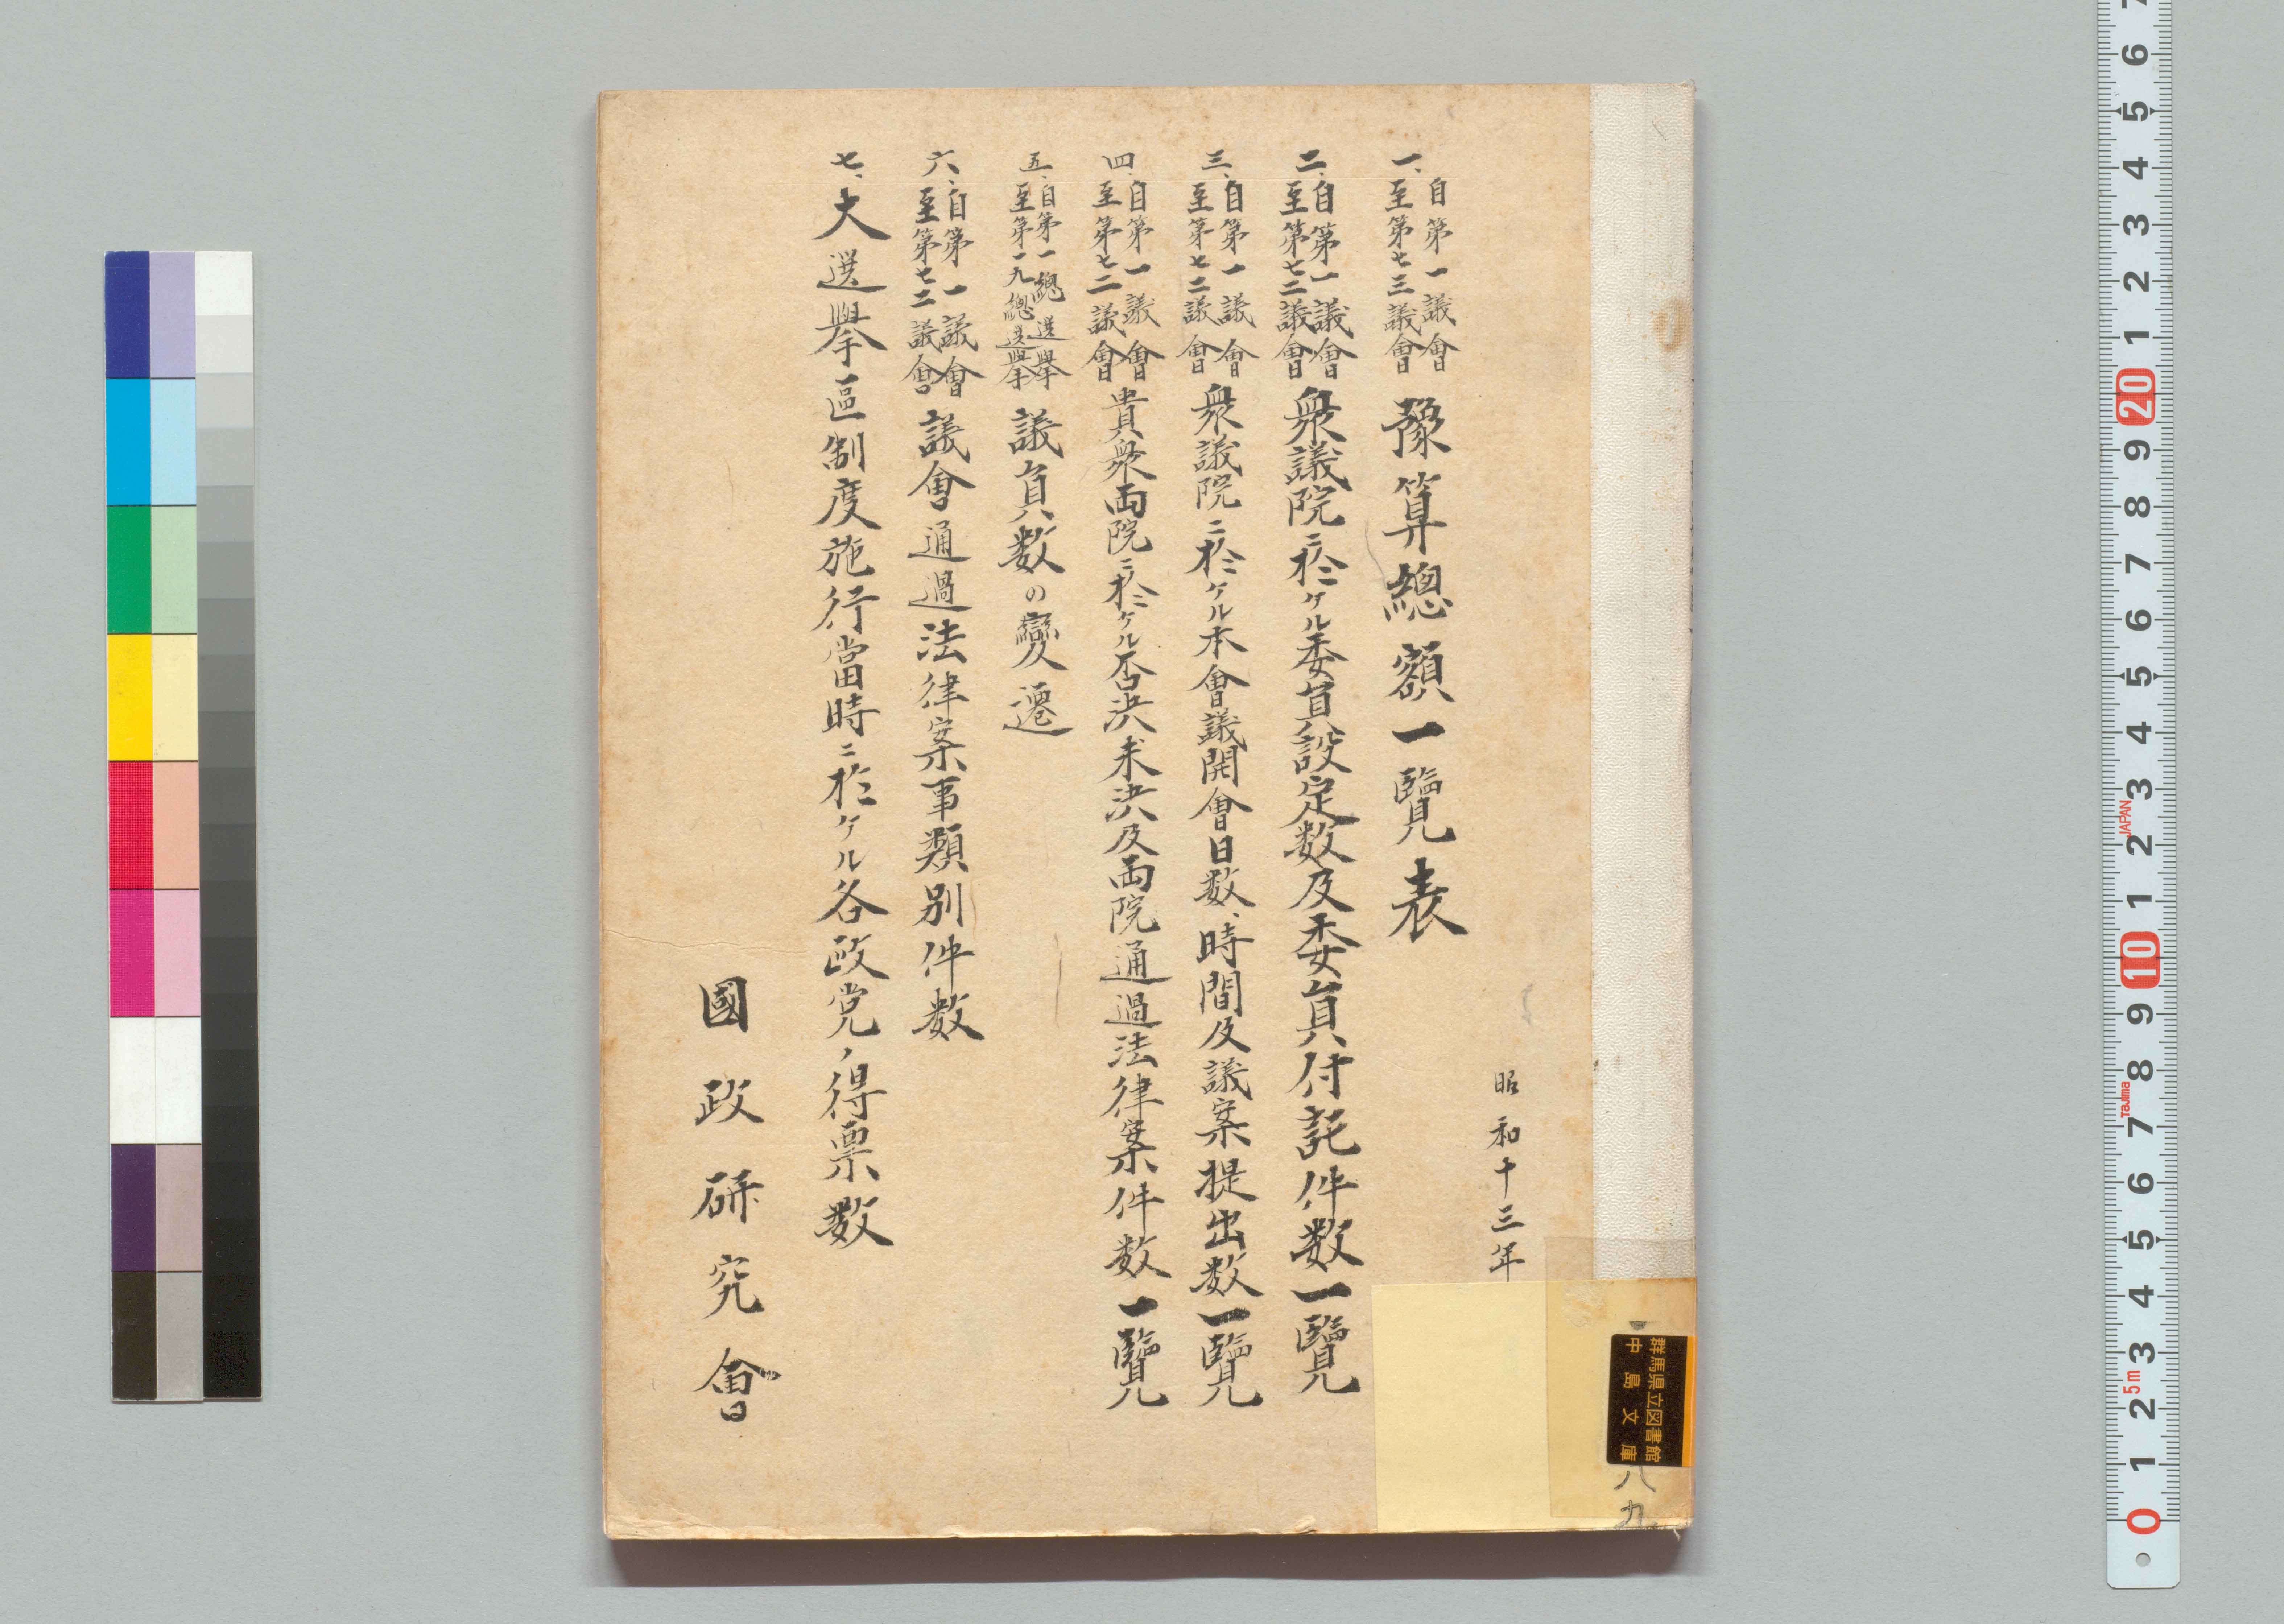 昭和十三年
一、自第一議會至第七三議會豫算總額一覽表
二、自第一議會至第七二議會衆議院ニ於ケル委員設定数及委員付託件数一覽
三、自第一議會至第七二議會衆議院ニ於ケル本會議開會日数、時間及議案提出数一覽
四、自第一議會至第七二議會貴衆両院ニ於ケル否決未決及両院通過法律案件数一覽
五、自第一總選擧至第一九總選擧議員数の變遷
六、自第一議會至第七二議會議會通過法律案事類別件数
七、大選擧區制度施行當時ニ於ケル各政党ノ得票数
國政硏究會
群馬県立図書館
中島文庫
八九
7 6 5 4 3 2 1 20 9 8 7 6 5 4 3 2 1 10 9 8 7 6 5 4 3 2 1 0
JAPAN
Tajima
5m